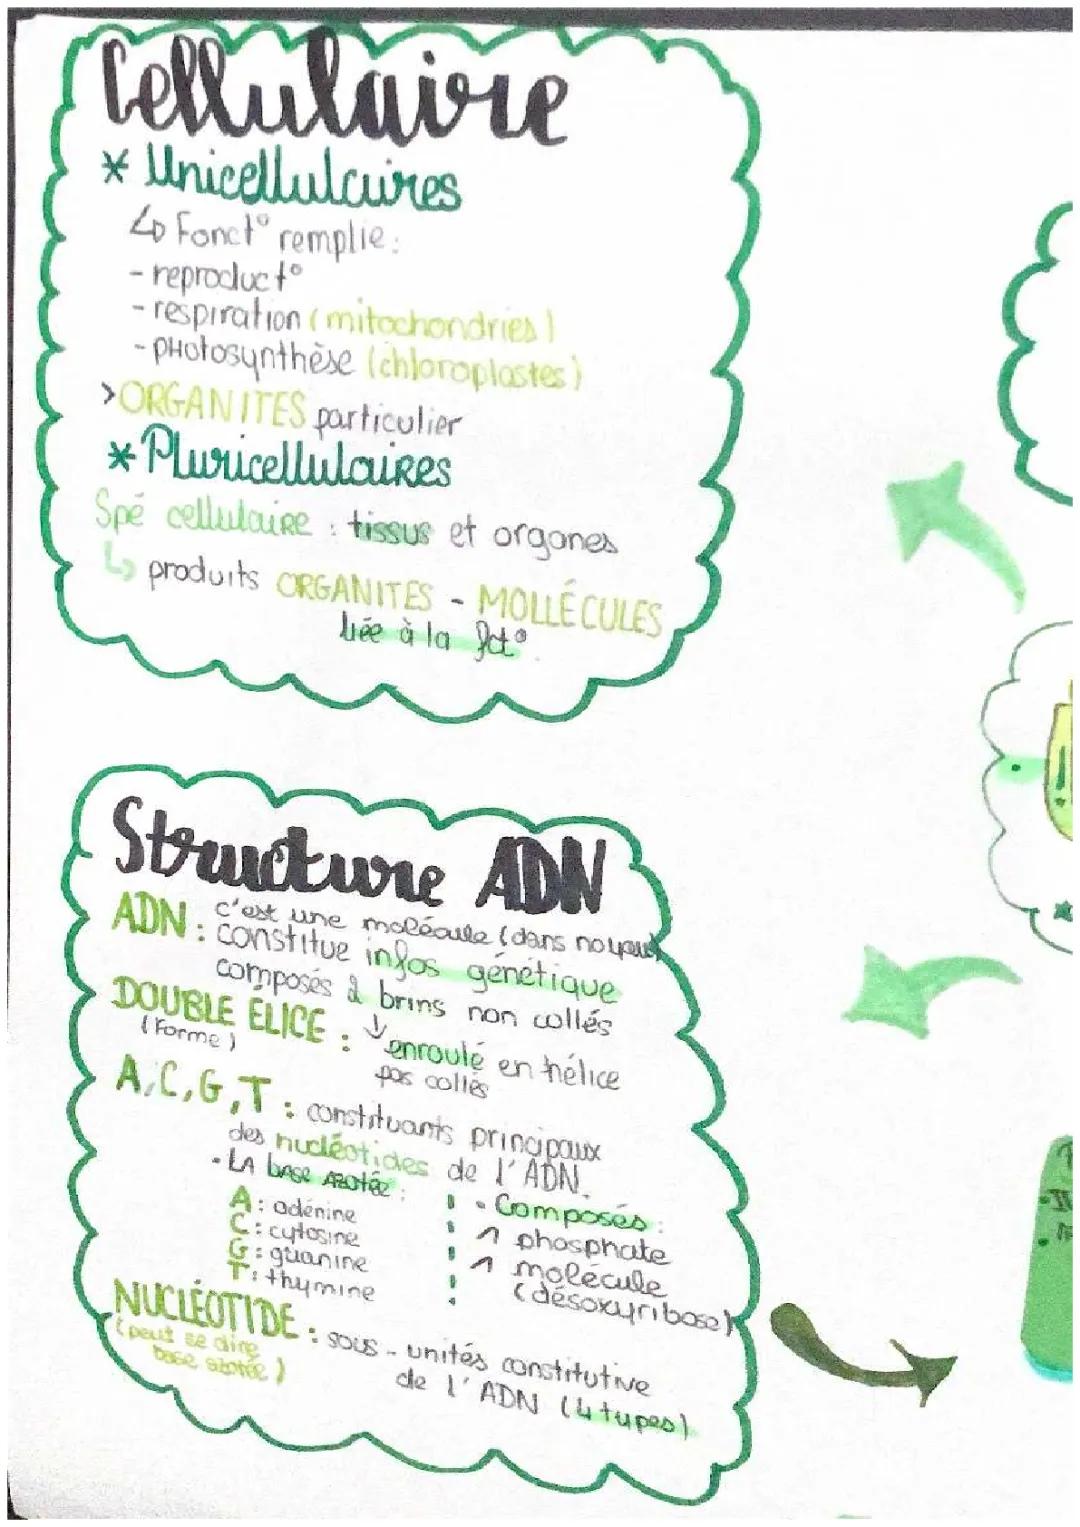 Cellulaire
* Unicellulaires
↳ Fonct° remplie :
- reproduct°
- respiration (mitochondries)
- pHotosynthèse (chloroplastes)
>ORGANITES particulier
* PluricellulaiREs
Spé cellulaiRE : tissus et organes
↳ produits ORGANITES - MOLLÉCULES
liée à la fct°
Structure ADN
ADN : c'est une molécule (dans noyaux)
constitue infos génétique
composés 2 brins non collés
DOUBLE ELICE : ↓ enroulé en hélice
(Forme) pas collés
A, C, G, T : constituants principaux
des nucléotides de l'ADN.
• LA base AZOTée :
A : adénine
C : cytosine
G : guanine
T : thymine
• Composés :
1 phosphate
1 molécule
(désoxyribose)
NUCLÉOTIDE : sous-unités constitutive
(peut se dire
base azotée)
de l'ADN (4 types)